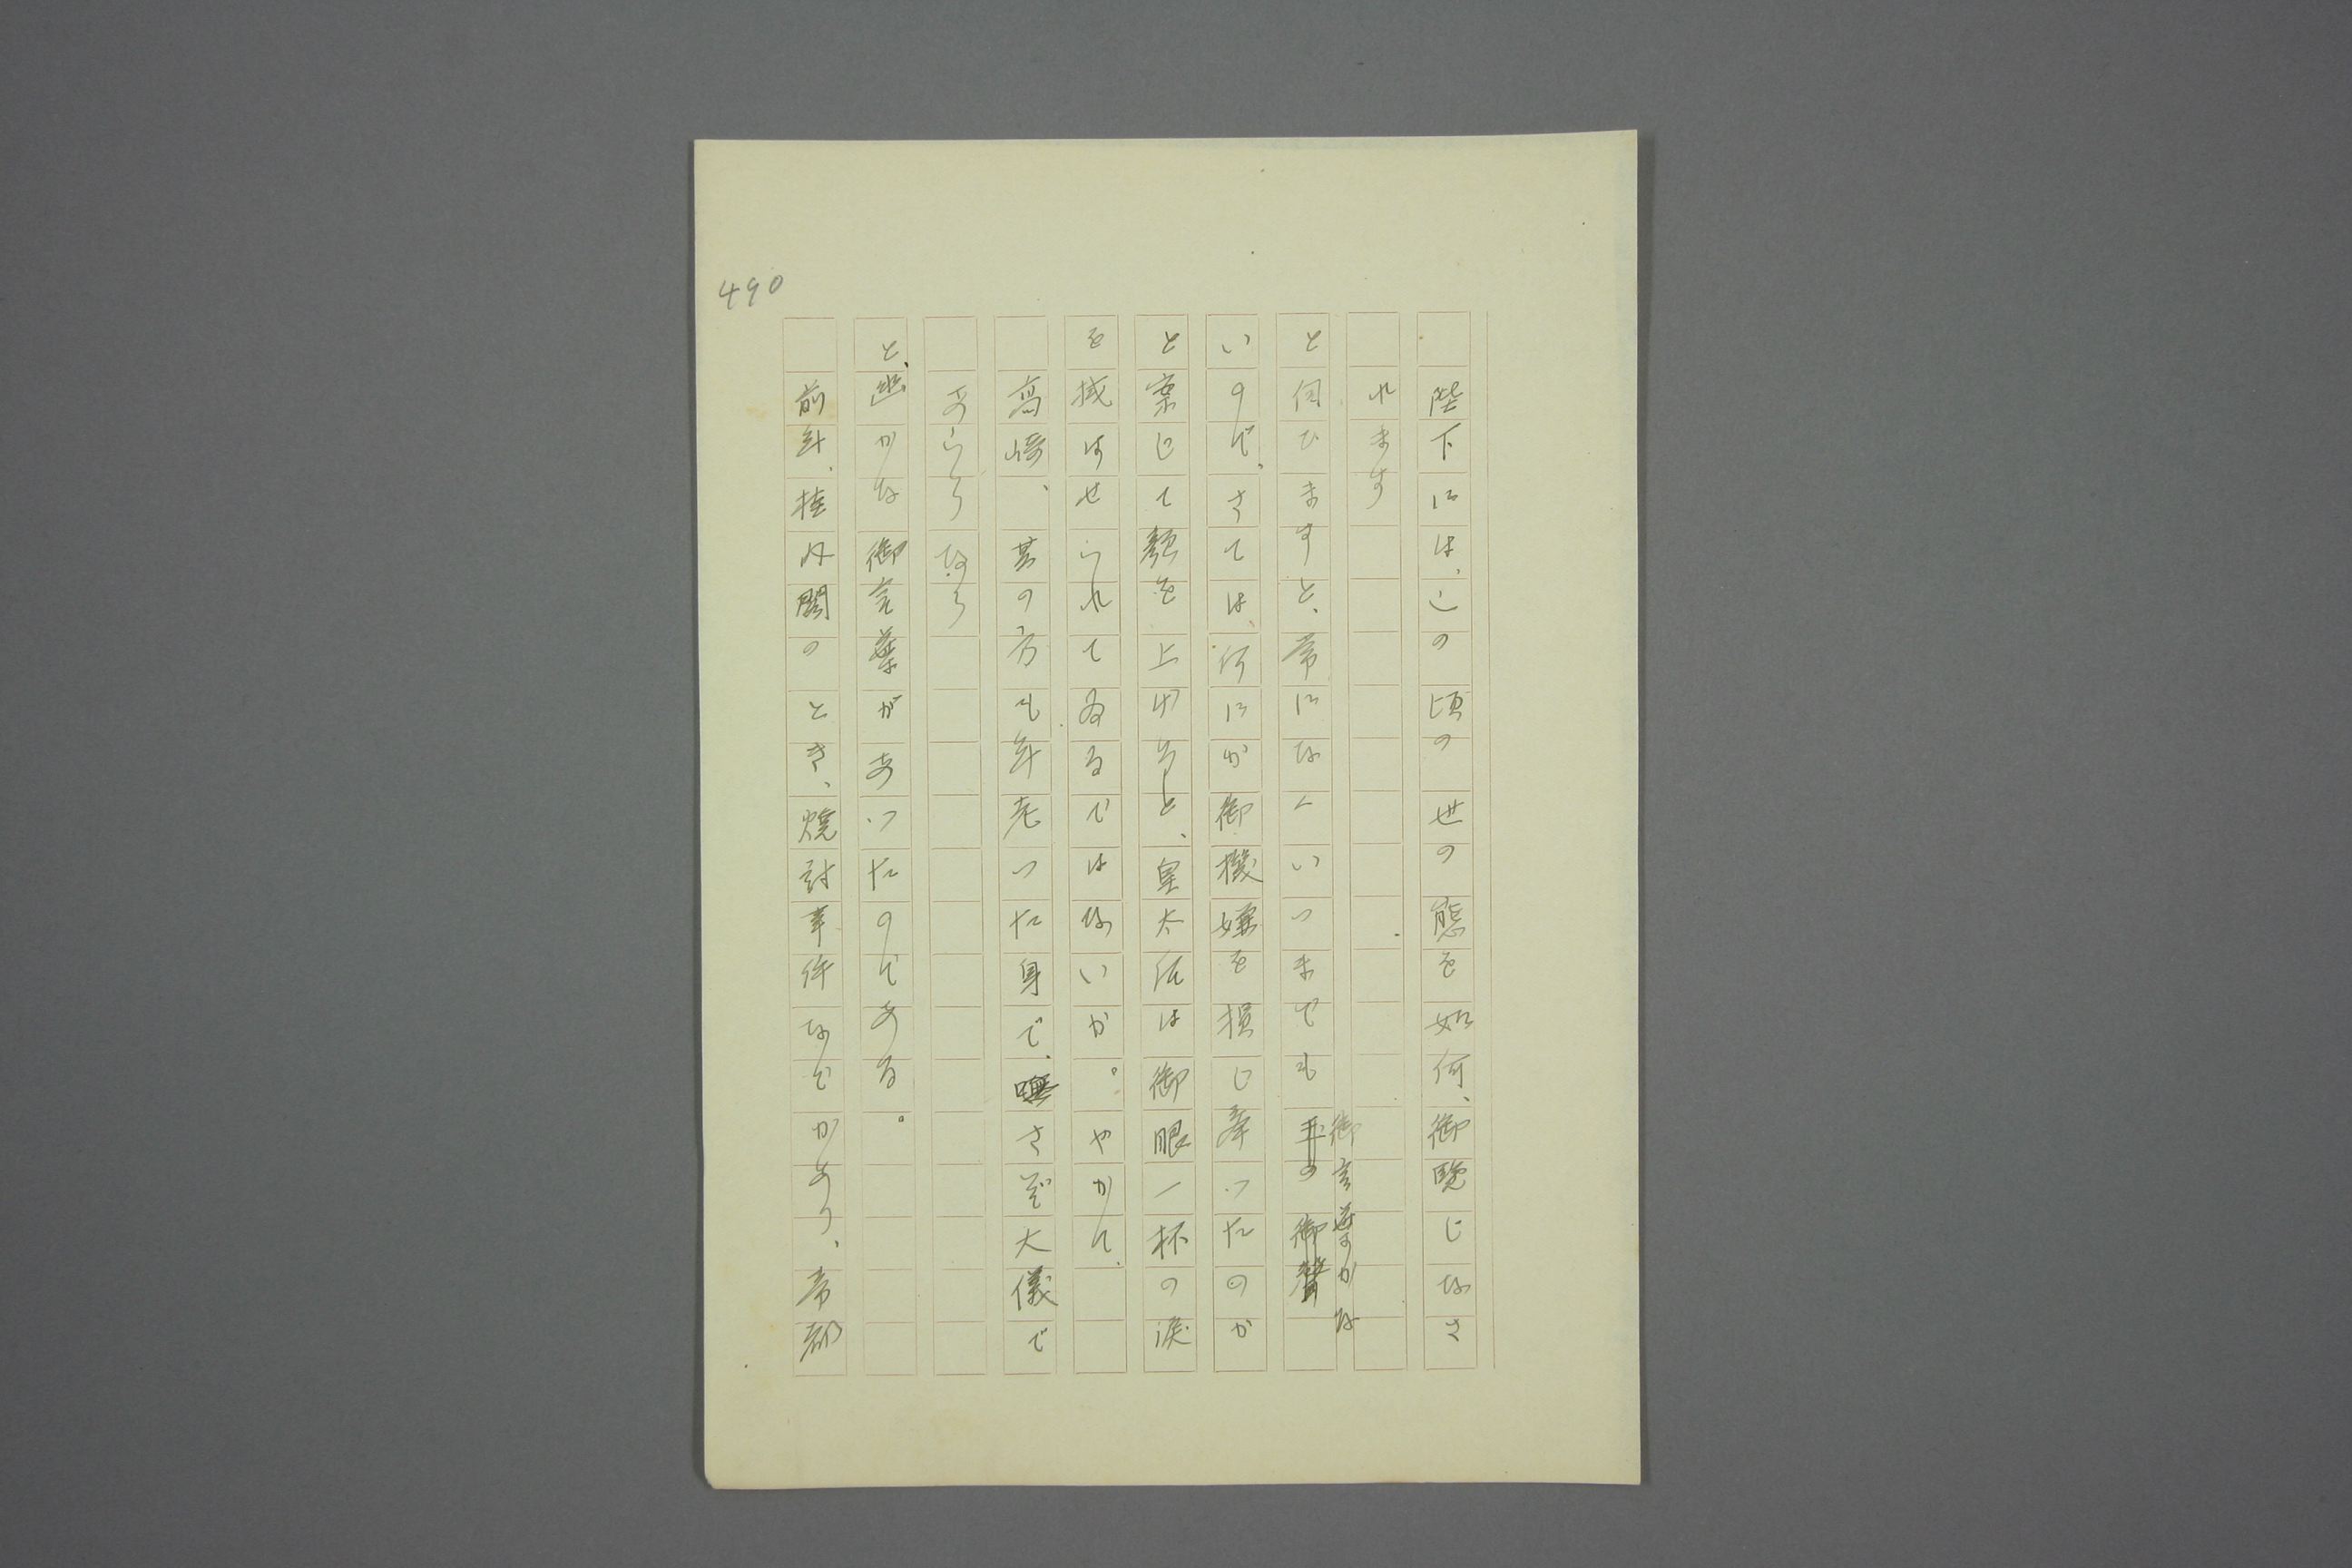 490
陛下には、この頃の世の態を如何、御覧じなさ
れます
と伺ひますと、常になくいつまでも御言葉がな
いので、さては、何にか御機嫌を損じ奉つたのか
と案じて顔を上げると、皇太后は御眼一杯の涙
を拭はせられてゐるではないか。やがて、
高崎、其の方も年老つた身で、さぞ大儀で
あらうなう
と、幽かな御言葉があつたのである。
前年、桂内閣のとき、焼討事件などがあり、帝都